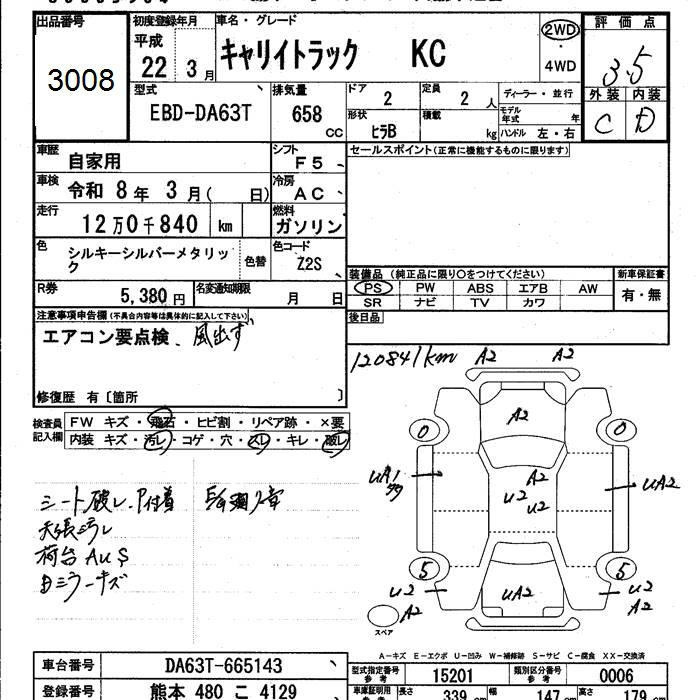 出品番号 初度登録年月 車名・グレード 評価点
3008 平成 22年 3月 キャリイトラック KC 2WD・4WD 3.5
外装 内装
C D
型式 排気量 ドア 定員 ディーラー・並行
EBD-DA63T 658 CC 2 2人 モデル年式 年
形状 積載 ハンドル 左・右
ヒラB kg
車歴 自家用 シフト F5 セールスポイント(正常に機能するものに限ります)
車検 令和 8年 3月( 日) 冷房 AC
走行 12万0千840 km 燃料 ガソリン
色 シルキーシルバーメタリック 色替 色コード Z2S
装備品 (純正品に限り○をつけてください) 新車保証書
R券 5,380円 名変通知期限 月 日 PS PW ABS エアB AW 有・無
SR ナビ TV カワ
注意事項申告欄(不具合内容等は具体的に記入して下さい) 後日品
エアコン要点検、風出ず
120841km A2 A2
修復歴 有〔箇所 〕
検査員記入欄 FW キズ・飛石・ヒビ割・リペア跡・×要
内装 キズ・汚レ・コゲ・穴・スレ・キレ・破レ
A2
0 0
UA1 A2 UA2
U2 U2
シート破レ、P付着
天張汚レ
荷台AUS
ミラーキズ
5 5
U2 UA2 U2
A2 A2
スペア
A-キズ E-エクボ U-凹み W-補修跡 S-サビ C-腐食 XX-交換済
車台番号 DA63T-665143 型式指定番号 参考 15201 類別区分番号 参考 0006
登録番号 熊本 480 こ 4129 車庫証明用 参考 長さ 339cm 幅 147cm 高さ 179cm